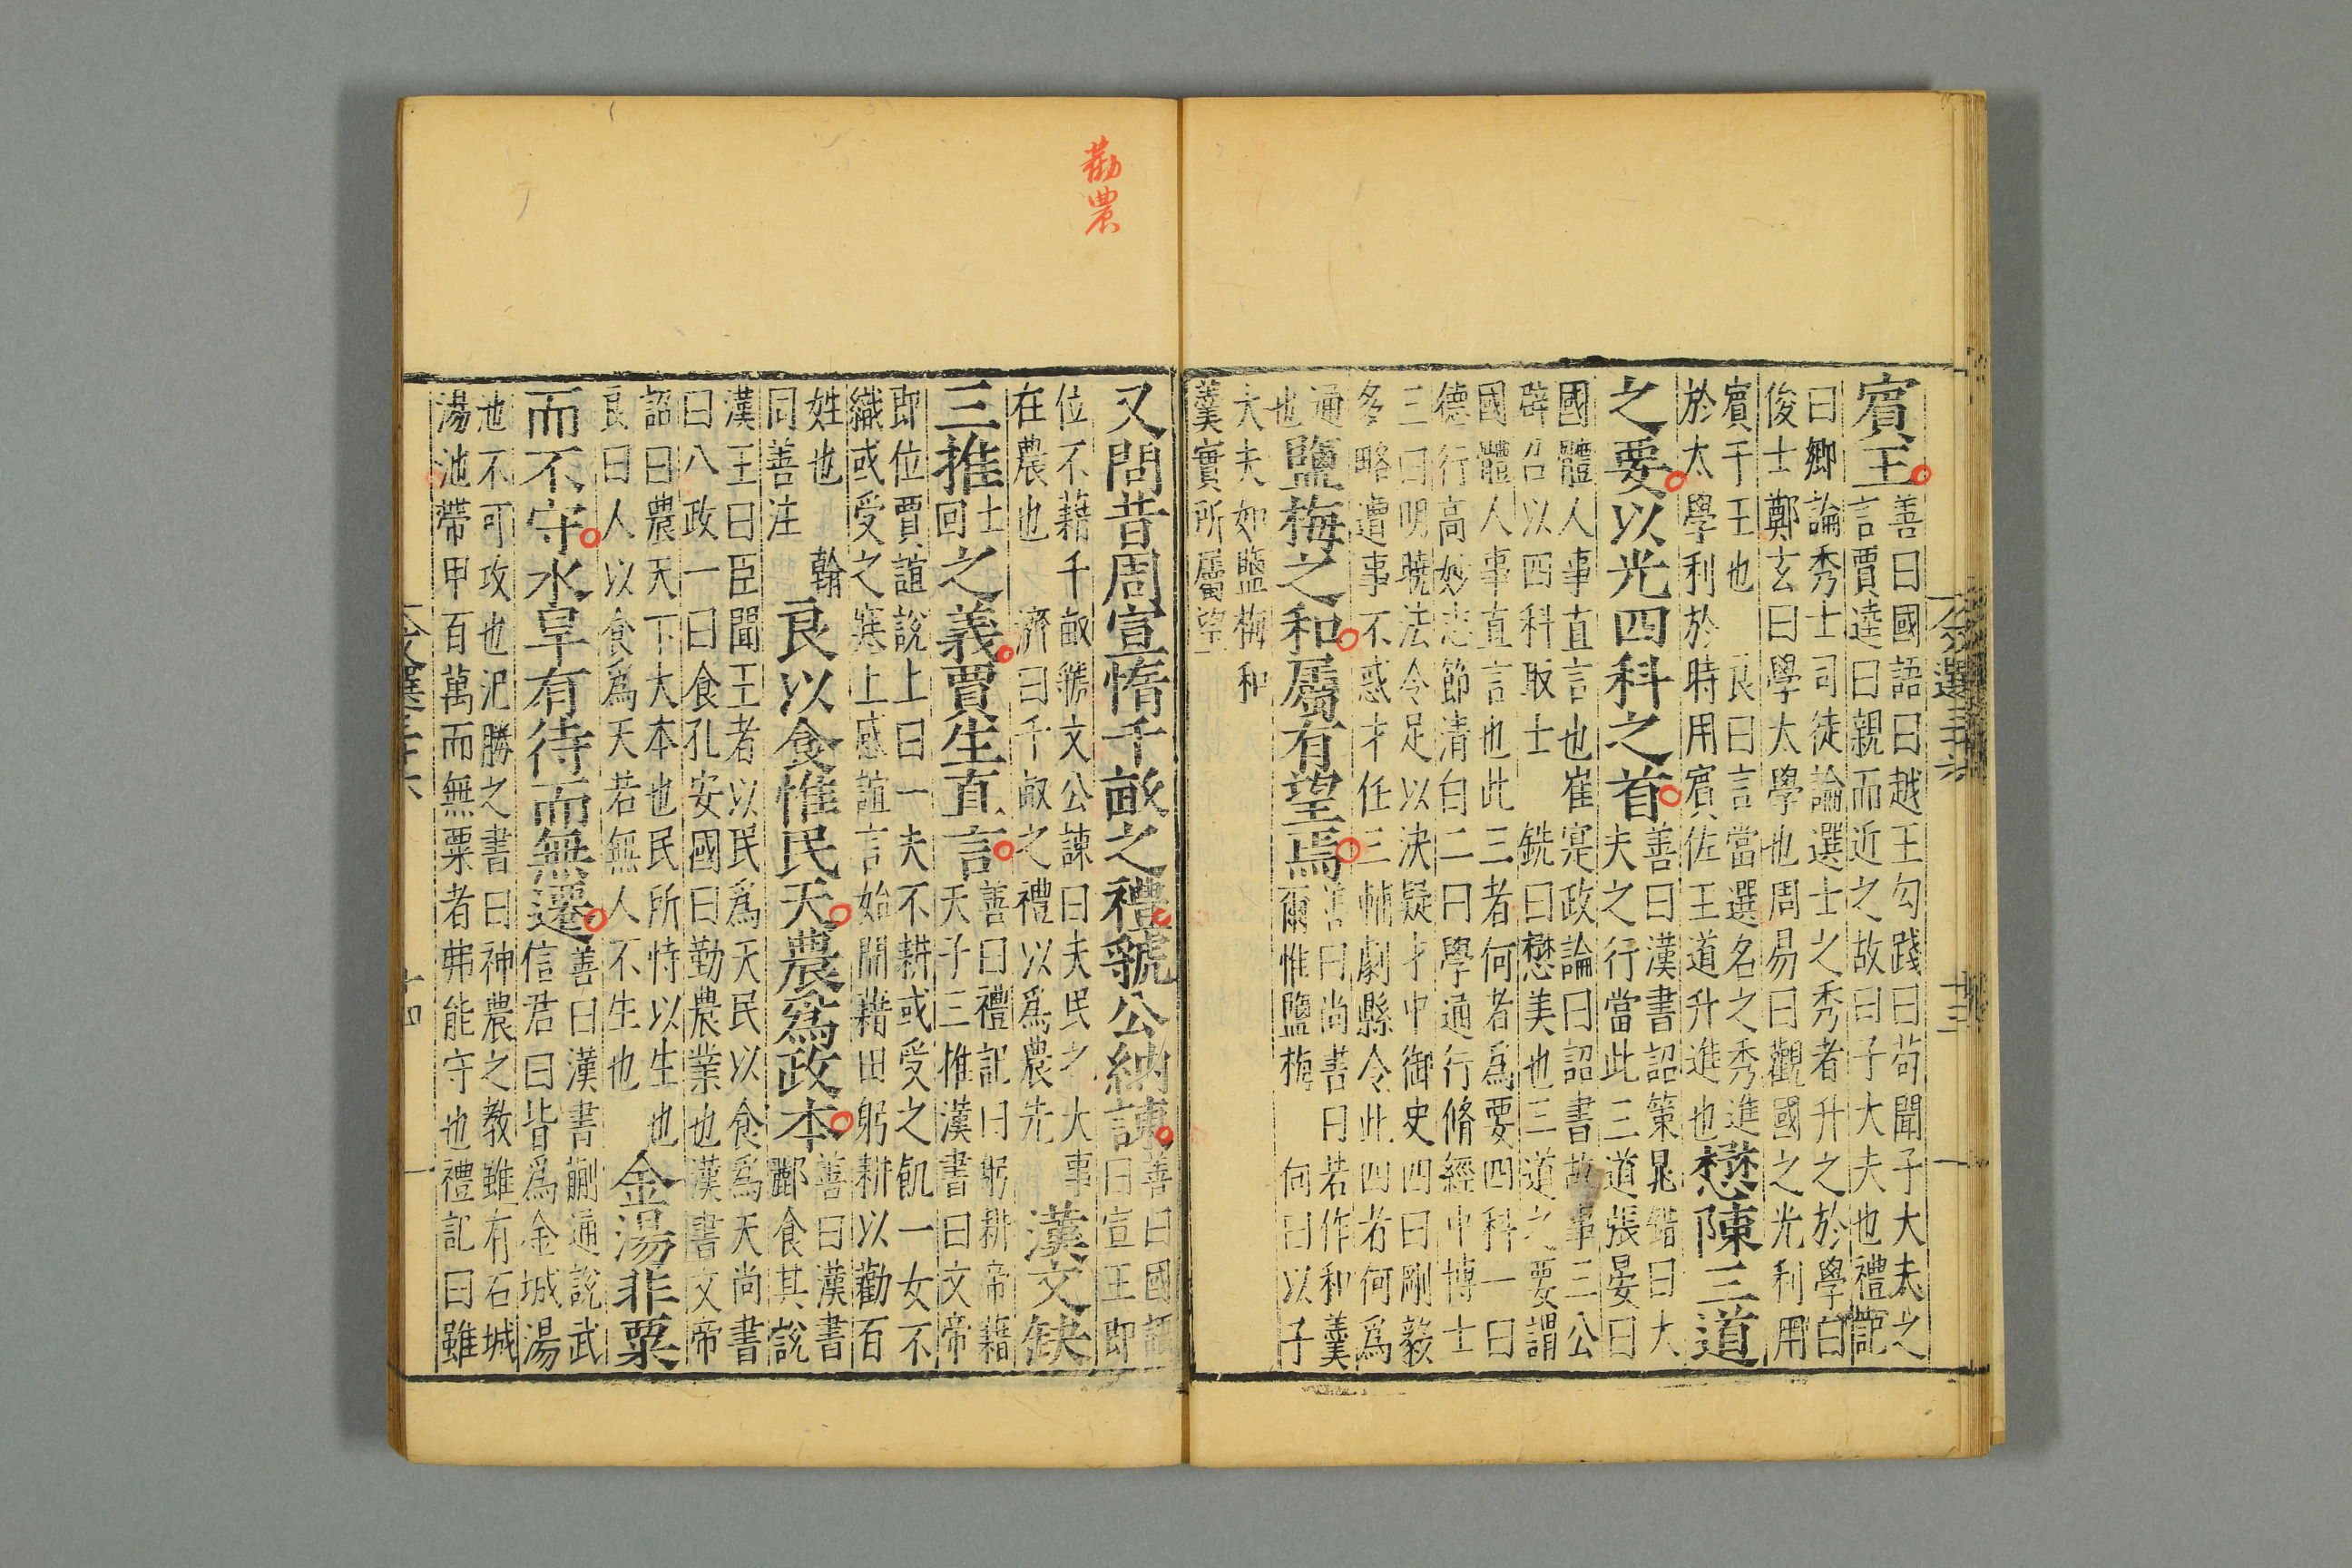 文選三十六
十三
賓王
善曰國語曰越王勾踐曰苟聞子大夫之
言賈逵曰親而近之故曰子大夫也禮記
曰鄉論秀士司徒論選士之秀者升之於學曰
俊士鄭玄曰學太學也周易曰觀國之光利用
賓于王也 良曰言當選名之秀進
於太學利於時用賓佐王道升進也
懋陳三道
之要以光四科之首
善曰漢書詔策晁錯曰大
夫之行當此三道張晏曰
國體人事直言也崔寔政論曰詔書故事三公
辟召以四科取士 銑曰懋美也三道之要謂
國體人事直言也此三者何者爲要四科一曰
德行高妙志節清白二曰學通行脩經中博士
三曰明曉法令足以決疑才中御史四曰剛毅
多略遭事不惑才任三輔劇縣令此四者何爲
通
也
鹽梅之和屬有望焉
善曰尚書曰若作和羹
爾惟鹽梅 向曰以子
大夫如鹽梅和
羹實所屬望
勸農
又問昔周宣惰千畝之禮虢公納諫
善曰國語
曰宣王即
位不藉千畝虢文公諫曰夫民之大事
在農也 濟曰千畝之禮以爲農先
漢文缺
三推
士
回
之義賈生直言
善曰禮記曰躬耕帝籍
天子三推漢書曰文帝
即位賈誼說上曰一夫不耕或受之飢一女不
織或受之寒上感誼言始開藉田躬耕以勸百
姓也 翰
同善注
良以食惟民天農爲政本
善曰漢書
酈食其說
漢王曰臣聞王者以民爲天民以食爲天尚書
曰八政一曰食孔安國曰勤農業也漢書文帝
詔曰農天下大本也民所恃以生也
良曰人以食爲天若無人不生也
金湯非粟
而不守水旱有待而無遷
善曰漢書蒯通說武
信君曰皆爲金城湯
池不可攻也氾勝之書曰神農之教雖有石城
湯池帶甲百萬而無粟者弗能守也禮記曰雖
十四